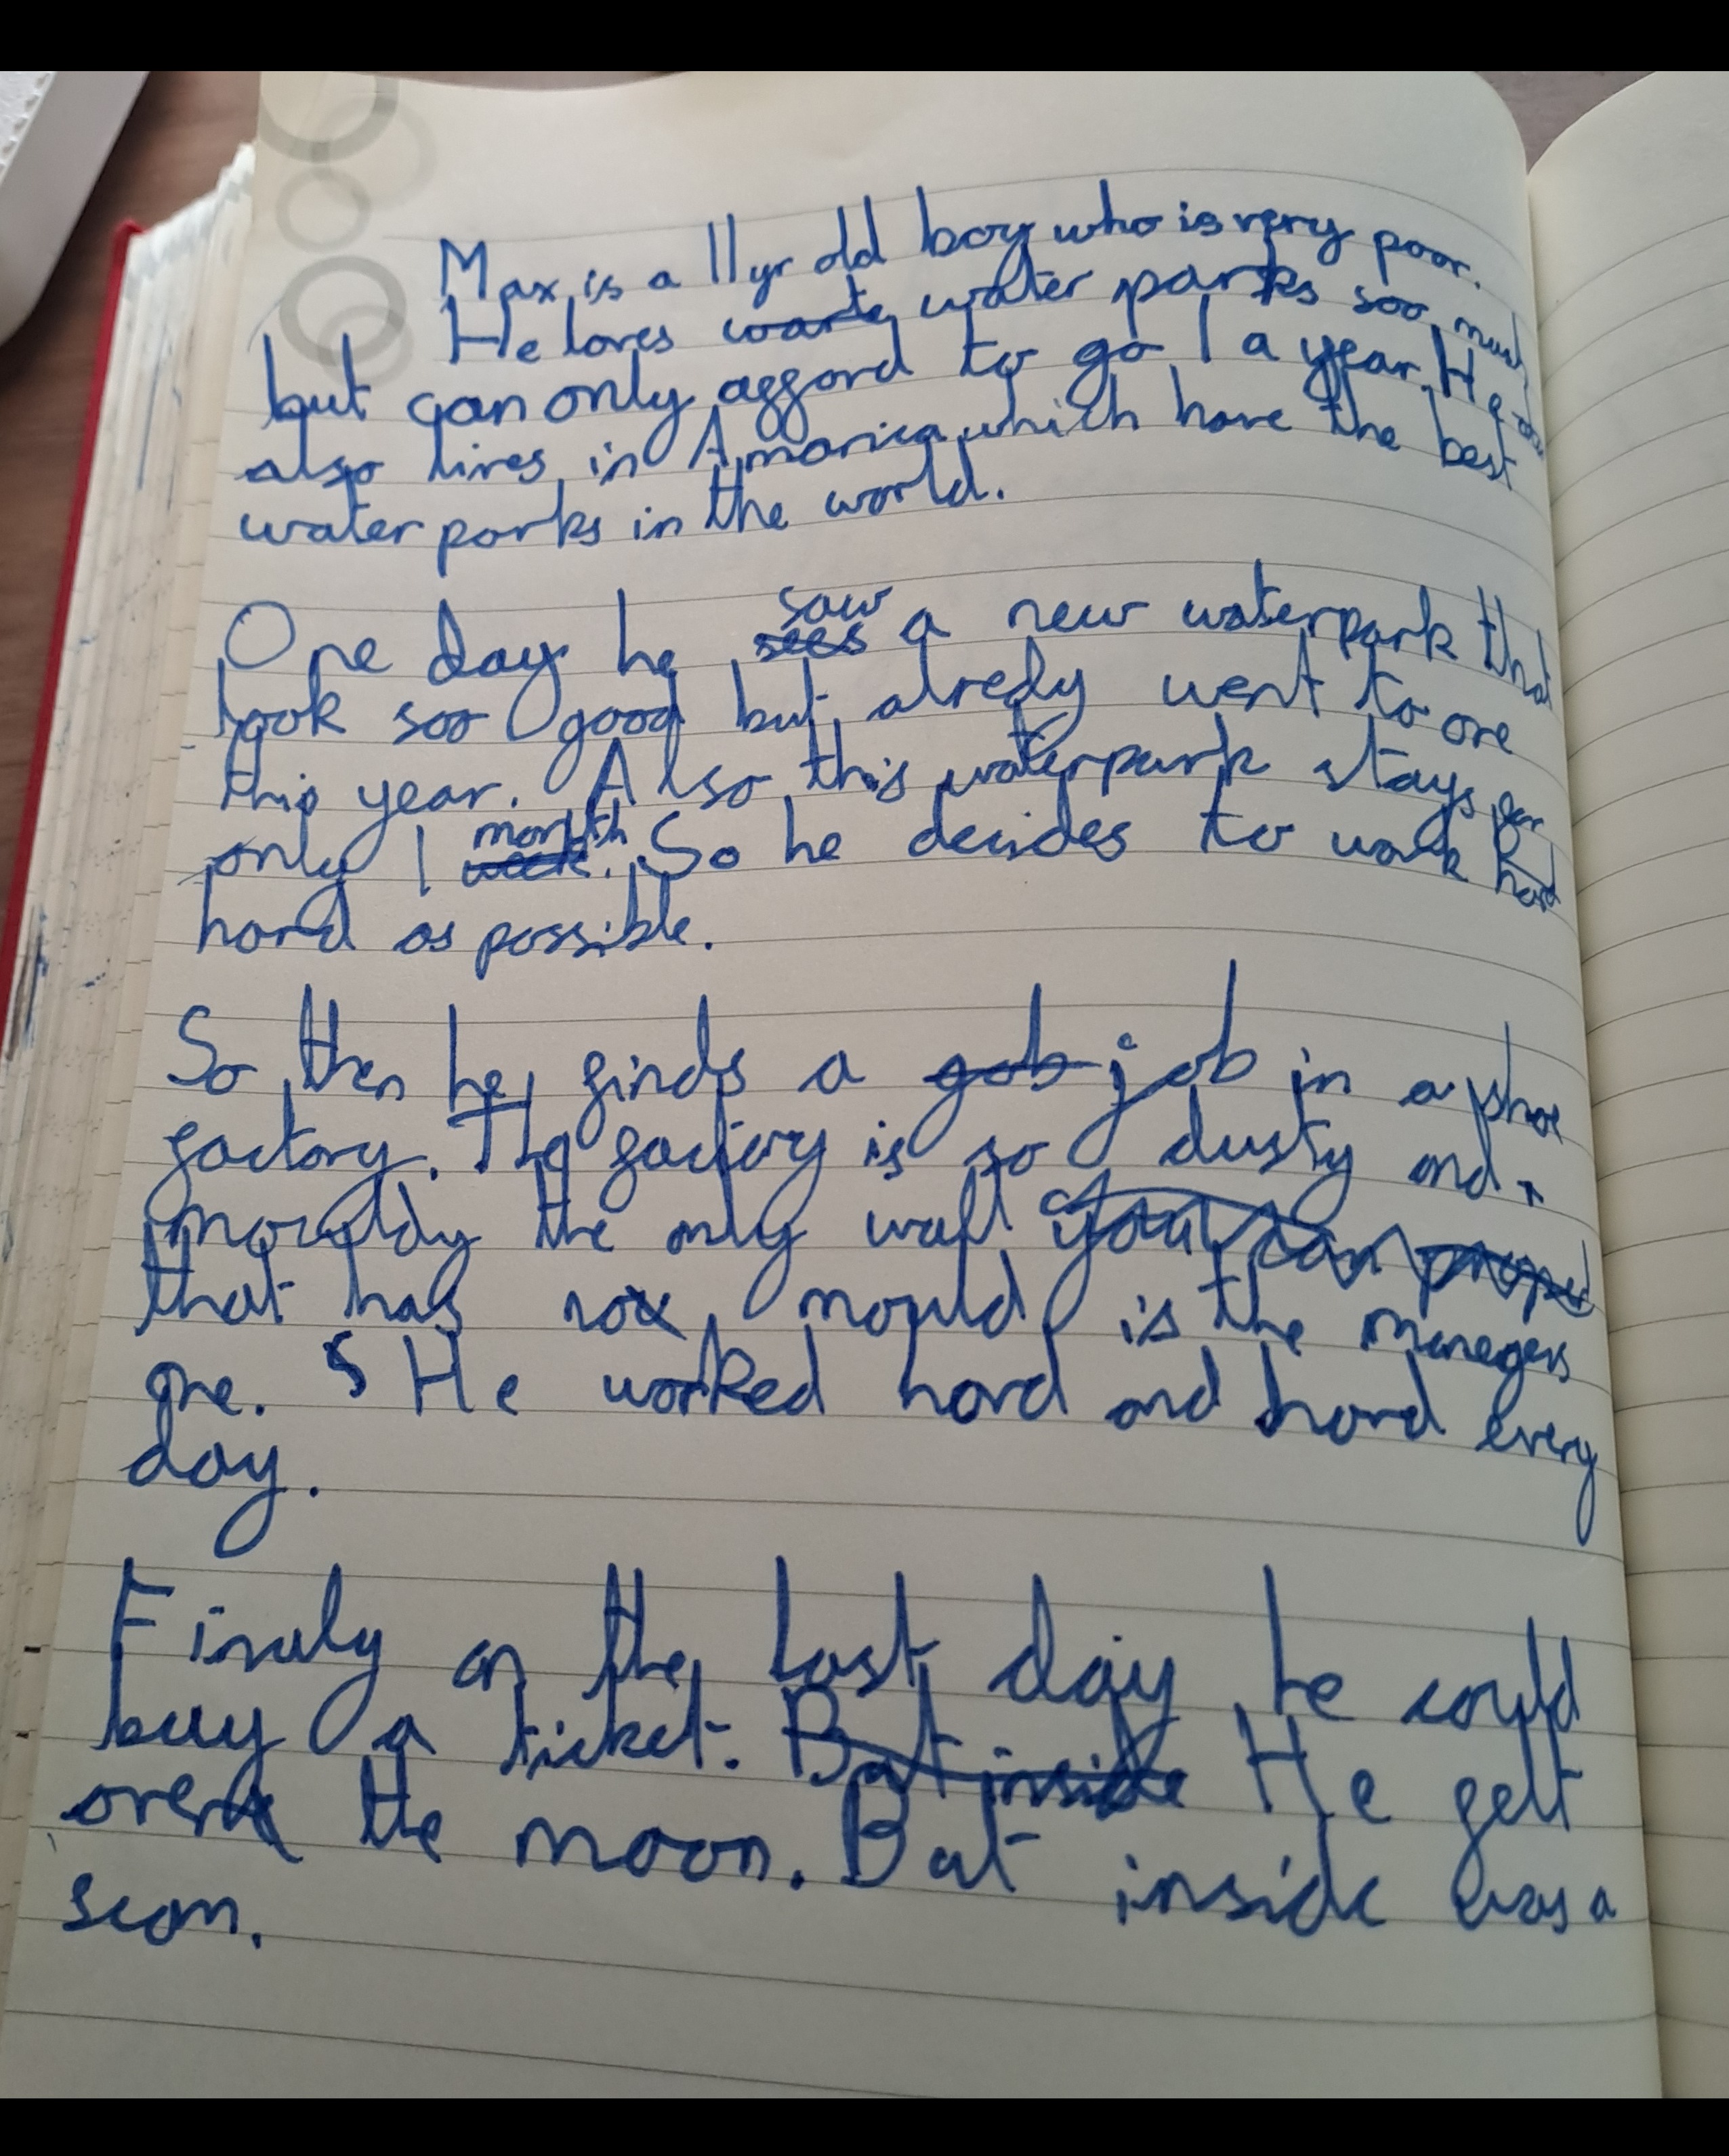 Max is a 11 yr old boy who is very poor.
He loves water parks soo much
but can only afford to go 1 a year. He
also lives in America which have the best
water parks in the world.
One day he saw a new waterpark that
look soo good but alredy went to one
this year. Also this waterpark stays for
only 1 month. So he decides to work
hard as possible.
So then he finds a job in a shoe
factory. The factory is so dusty and
mouldy the only wall
that has no mould is the manegers
one. He worked hard and hard every
day.
Finaly on the last day he could
buy a ticket. He felt
over the moon. But inside was a
scam.